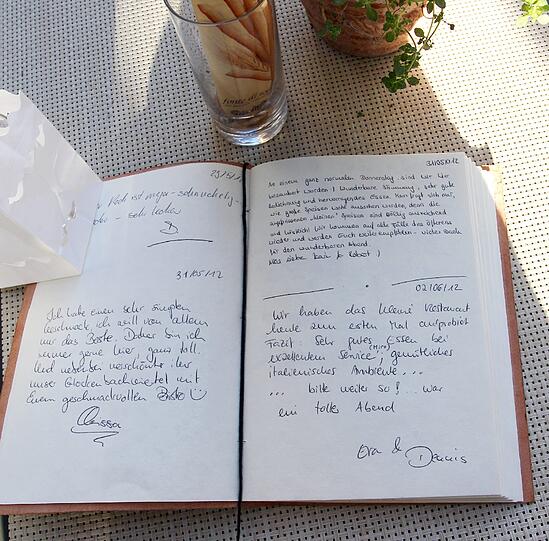 29/5/12
Koch ist mega-
- sehr lecker
31/05/12
Ich habe einen sehr
Geschmack, ich will von allem
nur das Beste. Daher bin ich
immer gerne hier, ganz toll.
Und nebenbei verschönert ihr
unser Glockenbachviertel mit
Eurem geschmackvollen Bistro
31/05/2012
An einem ganz normalen Donnerstag sind wir hier
verzaubert worden! Wunderbare Stimmung, sehr gute
Bedienung und hervorragendes Essen. Man fragt sich nur,
wie große Speisen wohl aussehen würden, denn die
angepriesenen "kleinen" Speisen sind völlig ausreichend
und köstlich! Wir kommen auf alle Fälle des öfteren
wieder und werden auch weiterempfehlen - vielen Dank
für den wunderbaren Abend.
02/06/12
Wir haben das kleine Restaurant
heute zum ersten Mal ausprobiert
Fazit: Sehr gutes Essen bei
exzellentem Service, gemütliches
italienisches Ambiente...
... bitte weiter so! ... war
ein tolles Abend
&
Dennis